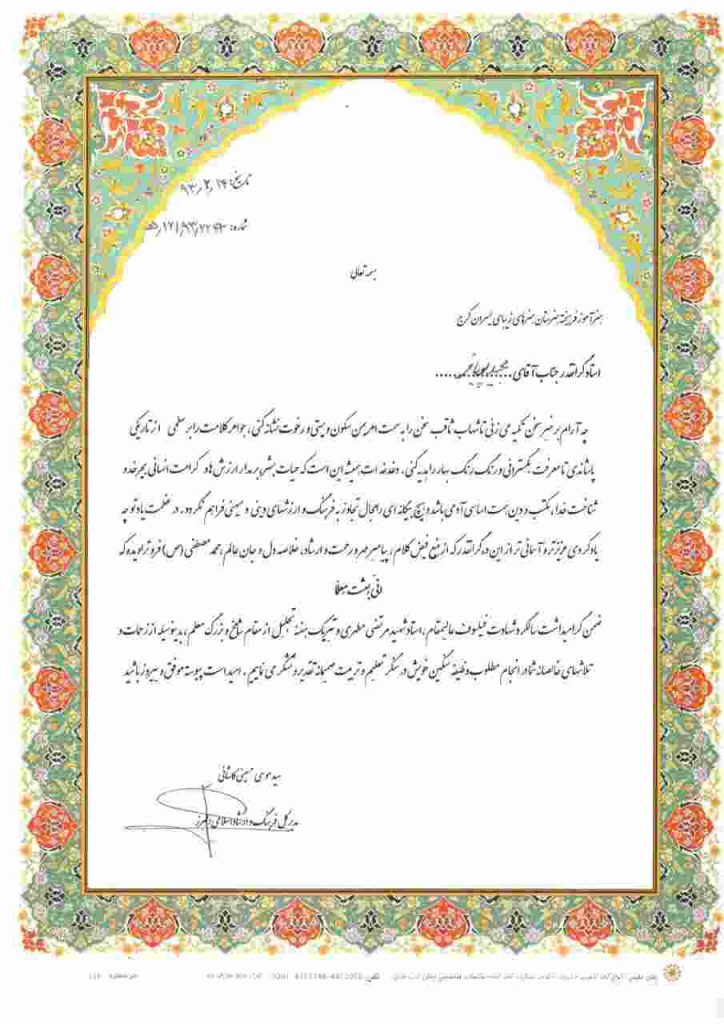 تاریخ: ۹۳/۲/۱۴
شماره: ۱۲۱/۹۳/۲۲۴۳
بسمه تعالی
هنرآموز فرهیخته هنرستان هنرهای زیبای پسران کرج
استاد گرانقدر جناب آقای
چه آرام بر منبر سخن تکیه می زنی تا شهاب ثاقب سخن را به سمت اهریمن سکون و سستی و رخوت نشانه کنی، جواهر کلامت را بر سلمی از تاریکی
پاشاندی تا معرفت بگسترانی و رنگ رنگ بهار را هدیه کنی. دغدغه ات همیشه این است که حیات بشر بر مدار ارزش ها و کرامت انسانی بچرخد و
شناخت خدا، مکتب و دین سمت اساسی آدمی باشد و هیچ بیگانه ای را مجال تجاوز به فرهنگ و ارزشهای دینی و میهنی فراهم نگردد. در عظمت یاد تو چه
یادکردی عزیزتر و آسمانی تر از این در گرانقدر که از منبع فیض کلام، پیامبر مهر و رحمت و ارشاد، خلاصه دل و جان عالم، محمد مصطفی (ص) فرو تراویده که
انی بعثت معلما
ضمن گرامیداشت سالگرد شهادت فیلسوف عالیمقام، استاد شهید مرتضی مطهری و تبریک هفته تجلیل از مقام شامخ و بزرگ معلم، بدینوسیله از زحمات و
تلاشهای خالصانه شما در انجام مطلوب وظیفه سنگین خویش در سنگر تعلیم و تربیت صمیمانه تقدیر و تشکر می نماییم. امید است پیوسته موفق و پیروز باشید
سید موسی حسینی کاشانی
مدیرکل فرهنگ و ارشاد اسلامی البرز